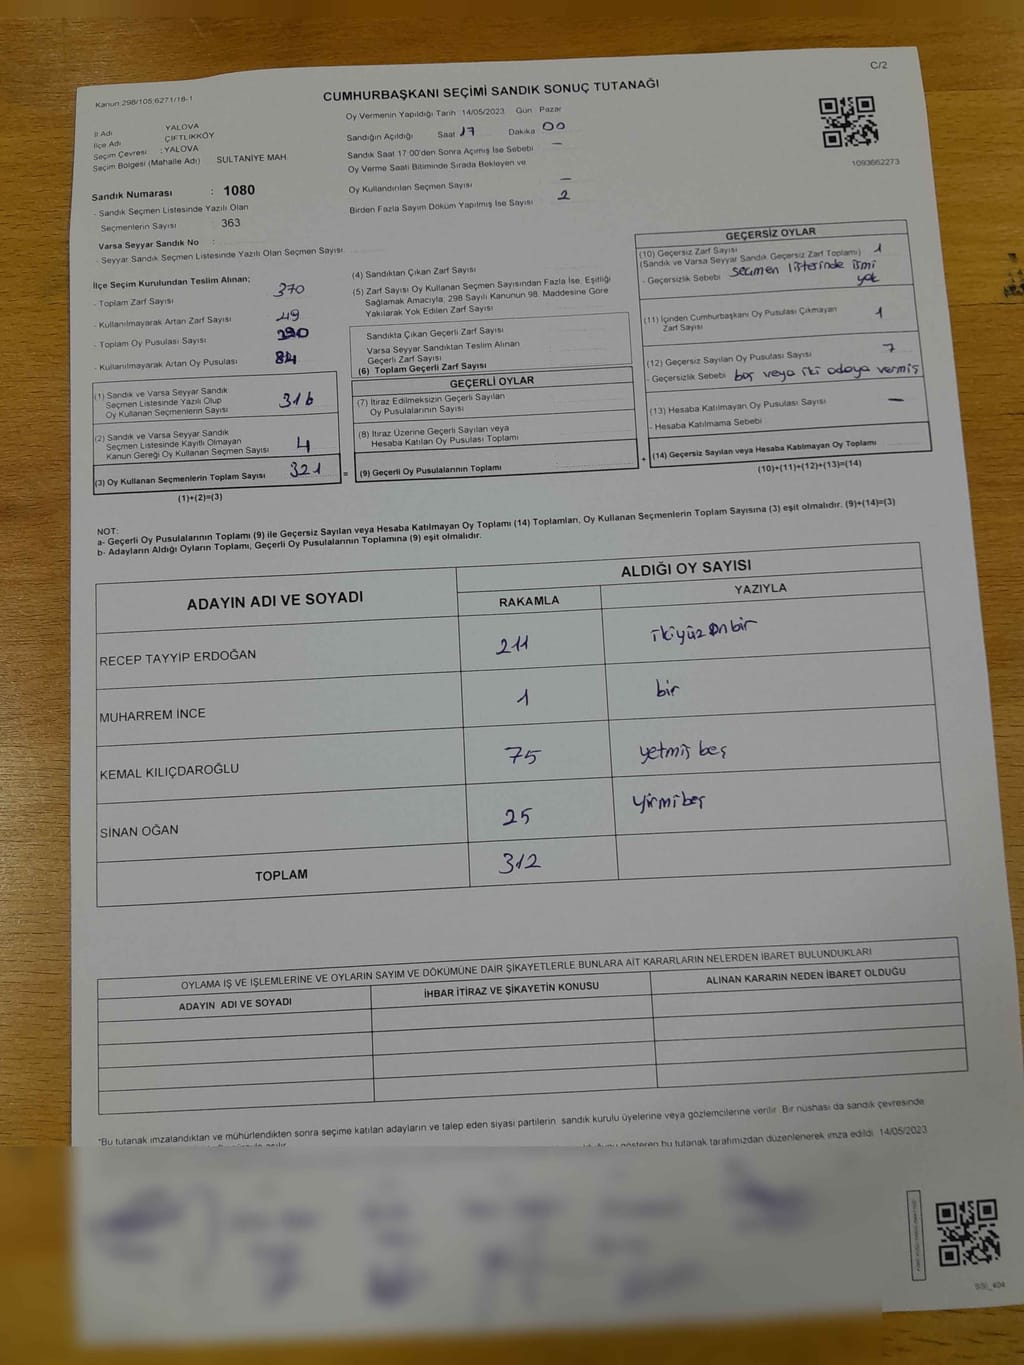 C/2
Kanun 298/105,6271/18-1
CUMHURBAŞKANI SEÇİMİ SANDIK SONUÇ TUTANAĞI
İl Adı YALOVA
İlçe Adı ÇİFTLİKKÖY
Seçim Çevresi : YALOVA
Seçim Bölgesi (Mahalle Adı) SULTANİYE MAH.
Sandık Numarası : 1080
- Sandık Seçmen Listesinde Yazılı Olan
Seçmenlerin Sayısı 363
Varsa Seyyar Sandık No :
- Seyyar Sandık Seçmen Listesinde Yazılı Olan Seçmen Sayısı
Oy Vermenin Yapıldığı Tarih 14/05/2023 Gün Pazar
Sandığın Açıldığı Saat 17 Dakika 00
Sandık Saat 17:00'den Sonra Açılmış İse Sebebi —
Oy Verme Saati Bitiminde Sırada Bekleyen ve
Oy Kullandırılan Seçmen Sayısı —
Birden Fazla Sayım Döküm Yapılmış İse Sayısı 2
1093662273
İlçe Seçim Kurulundan Teslim Alınan;
- Toplam Zarf Sayısı 370
- Kullanılmayarak Artan Zarf Sayısı 49
- Toplam Oy Pusulası Sayısı
- Kullanılmayarak Artan Oy Pusulası
(1) Sandık ve Varsa Seyyar Sandık
Seçmen Listesinde Yazılı Olup
Oy Kullanan Seçmenlerin Sayısı 316
(2) Sandık ve Varsa Seyyar Sandık
Seçmen Listesinde Kayıtlı Olmayan
Kanun Gereği Oy Kullanan Seçmen Sayısı 4
(3) Oy Kullanan Seçmenlerin Toplam Sayısı 321
(1)+(2)=(3)
(4) Sandıktan Çıkan Zarf Sayısı
(5) Zarf Sayısı Oy Kullanan Seçmen Sayısından Fazla İse, Eşitliği
Sağlamak Amacıyla, 298 Sayılı Kanunun 98. Maddesine Göre
Yakılarak Yok Edilen Zarf Sayısı
Sandıkta Çıkan Geçerli Zarf Sayısı
Varsa Seyyar Sandıktan Teslim Alınan
Geçerli Zarf Sayısı
(6) Toplam Geçerli Zarf Sayısı
GEÇERLİ OYLAR
(7) İtiraz Edilmeksizin Geçerli Sayılan
Oy Pusulalarının Sayısı
(8) İtiraz Üzerine Geçerli Sayılan veya
Hesaba Katılan Oy Pusulası Toplamı
= (9) Geçerli Oy Pusulalarının Toplamı +
GEÇERSİZ OYLAR
(10) Geçersiz Zarf Sayısı 1
(Sandık ve Varsa Seyyar Sandık Geçersiz Zarf Toplamı)
- Geçersizlik Sebebi seçmen listerinde ismi
yok
(11) İçinden Cumhurbaşkanı Oy Pusulası Çıkmayan 1
Zarf Sayısı
(12) Geçersiz Sayılan Oy Pusulası Sayısı 7
- Geçersizlik Sebebi boş veya iki adaya vermiş
(13) Hesaba Katılmayan Oy Pusulası Sayısı —
- Hesaba Katılmama Sebebi
(14) Geçersiz Sayılan veya Hesaba Katılmayan Oy Toplamı
(10)+(11)+(12)+(13)=(14)
NOT:
a- Geçerli Oy Pusulalarının Toplamı (9) ile Geçersiz Sayılan veya Hesaba Katılmayan Oy Toplamı (14) Toplamları, Oy Kullanan Seçmenlerin Toplam Sayısına (3) eşit olmalıdır. (9)+(14)=(3)
b- Adayların Aldığı Oyların Toplamı, Geçerli Oy Pusulalarının Toplamına (9) eşit olmalıdır.
ADAYIN ADI VE SOYADI
ALDIĞI OY SAYISI
RAKAMLA YAZIYLA
RECEP TAYYİP ERDOĞAN 211 ikiyüz onbir
MUHARREM İNCE 1 bir
KEMAL KILIÇDAROĞLU 75 yetmiş beş
SİNAN OĞAN 25 yirmibeş
TOPLAM 312
OYLAMA İŞ VE İŞLEMLERİNE VE OYLARIN SAYIM VE DÖKÜMÜNE DAİR ŞİKAYETLERLE BUNLARA AİT KARARLARIN NELERDEN İBARET BULUNDUKLARI
ADAYIN ADI VE SOYADI İHBAR İTİRAZ VE ŞİKAYETİN KONUSU ALINAN KARARIN NEDEN İBARET OLDUĞU
*Bu tutanak imzalandıktan ve mühürlendikten sonra seçime katılan adayların ve talep eden siyasi partilerin sandık kurulu üyelerine veya gözlemcilerine verilir. Bir nüshası da sandık çevresinde
gösteren bu tutanak tarafımızdan düzenlenerek imza edildi. 14/05/2023
SSI_404